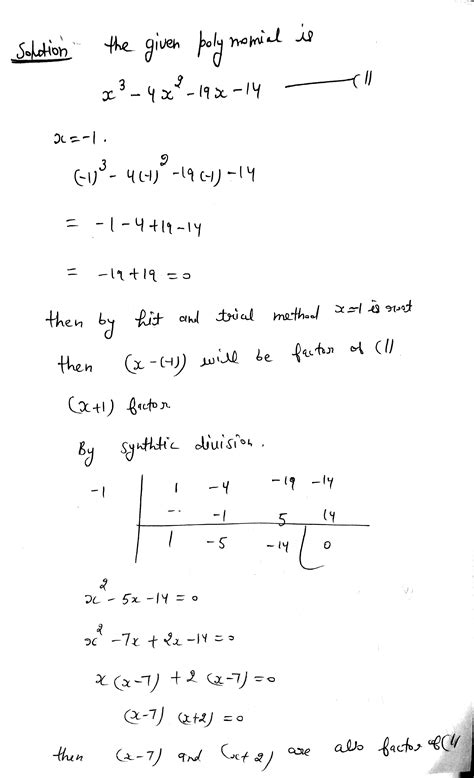 Solution the given polynomial is
x³ - 4x² - 19x - 14 ——— (1)
x = -1.
(-1)³ - 4(-1)² - 19(-1) - 14
= -1 - 4 + 19 - 14
= -19 + 19 = 0
then by hit and trial method x=-1 is root
then (x-(-1)) will be factor of (1)
(x+1) factor
By synthtic division.
-1 | 1 -4 -19 -14
-1 5 14
1 -5 -14 | 0
x² - 5x - 14 = 0
x² - 7x + 2x - 14 = 0
x(x-7) + 2(x-7) = 0
(x-7) (x+2) = 0
then (x-7) and (x+2) are also factor of (1)